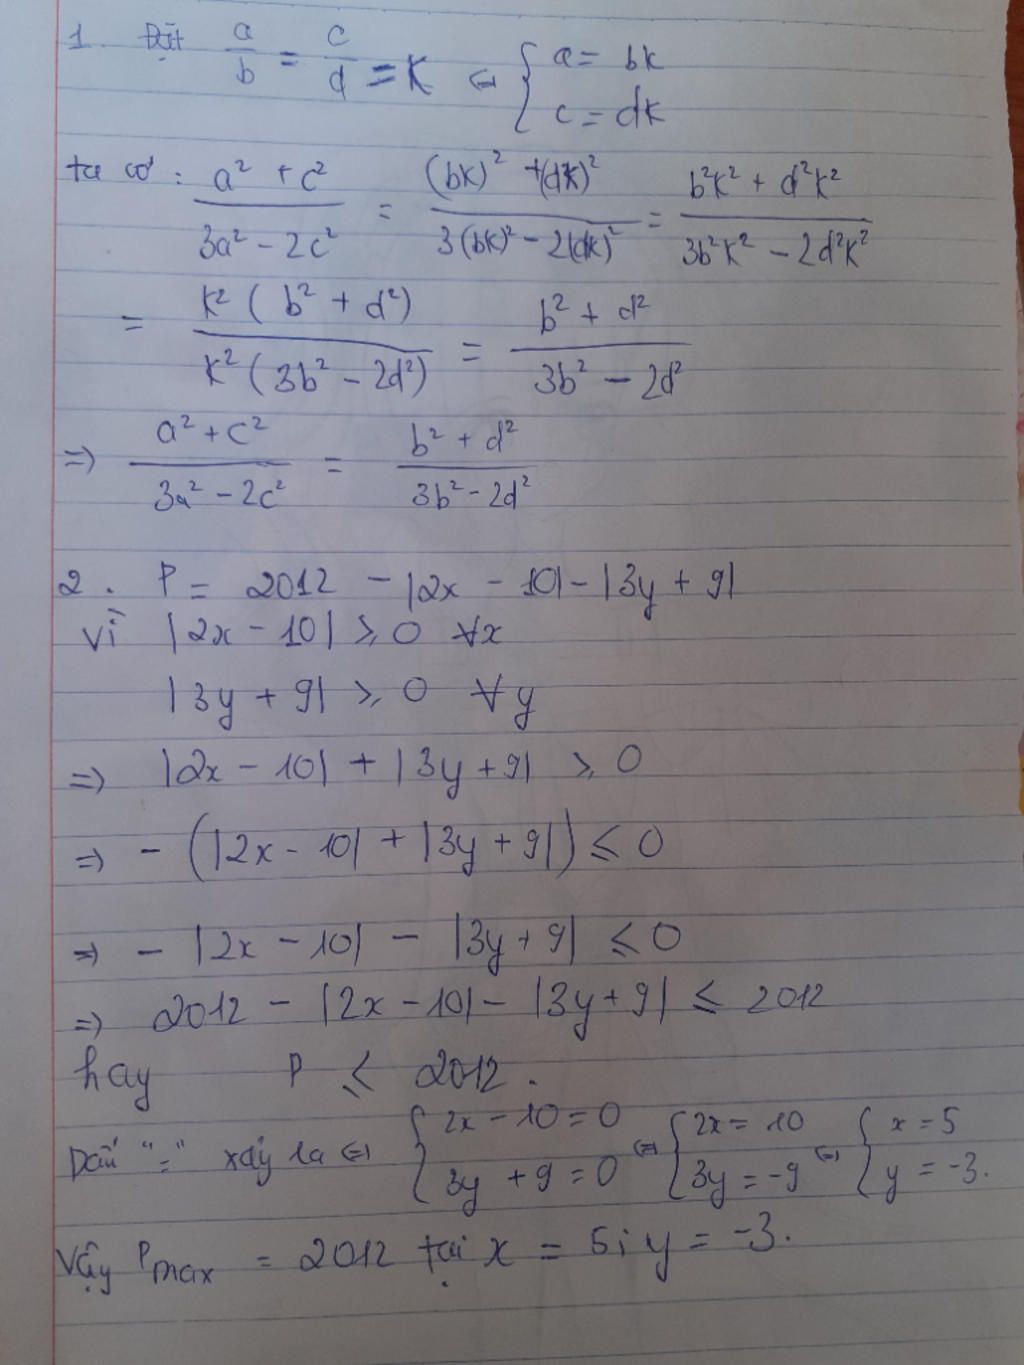 1. Đặt a/b = c/d = K ⇔ { a = bk
c = dk
ta có : (a² + c²)/(3a² - 2c²) = ((bk)² + (dk)²)/(3(bk)² - 2(dk)²) = (b²k² + d²k²)/(3b²k² - 2d²k²)
= (k²(b² + d²))/(k²(3b² - 2d²)) = (b² + d²)/(3b² - 2d²)
=> (a² + c²)/(3a² - 2c²) = (b² + d²)/(3b² - 2d²)
2. P = 2012 - |2x - 10| - |3y + 9|
vì |2x - 10| ⩾ 0 ∀x
|3y + 9| ⩾ 0 ∀y
=> |2x - 10| + |3y + 9| ⩾ 0
=> - (|2x - 10| + |3y + 9|) ⩽ 0
=> - |2x - 10| - |3y + 9| ⩽ 0
=> 2012 - |2x - 10| - |3y + 9| ⩽ 2012
hay P ⩽ 2012.
Dấu "=" xảy ra ⇔ { 2x - 10 = 0 ⇔ { 2x = 10 ⇔ { x = 5
3y + 9 = 0 3y = -9 y = -3.
Vậy Pmax = 2012 tại x = 5; y = -3.